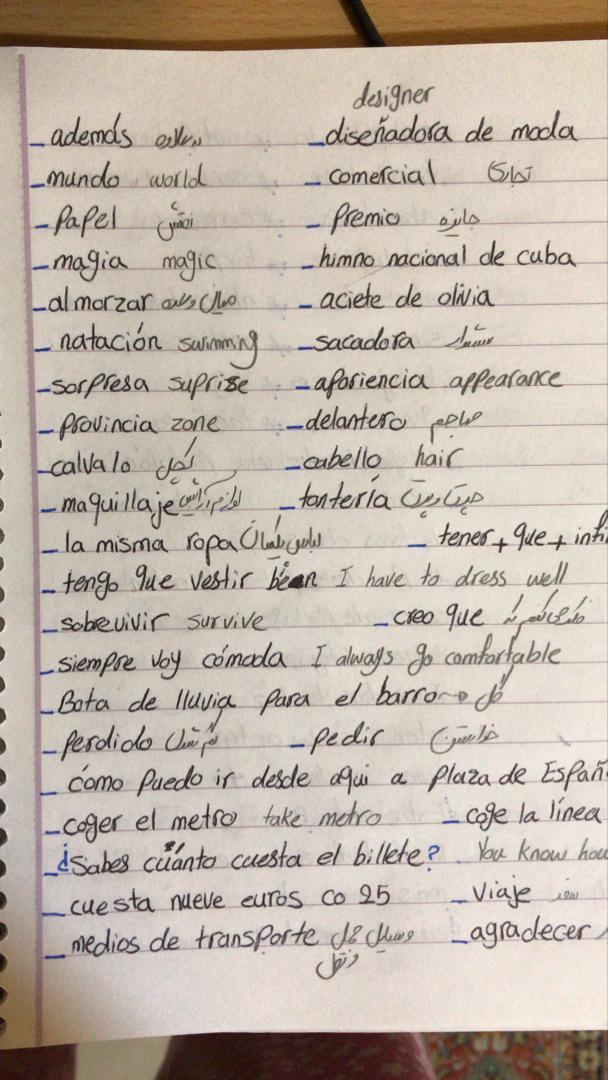 designer
_ además بعلاوه _ diseñadora de moda
_ mundo world _ comercial تجاری
_ Papel نقش _ Premio جایزه
_ magia magic _ himno nacional de cuba
_ almorzar _ aciete de olivia
_ natación swimming _ sacadora
_ sorpresa suprise _ apariencia appearance
_ Provincia zone _ delantero مهاجم
_ calvalo _ cabello hair
_ maquillaje لوازم آرایش _ tontería
_ la misma ropa لباس یکسان _ tener + que + infi
_ tengo que vestir bien I have to dress well
_ sobrevivir survive _ creo que فکر می کنم که
_ siempre voy cómoda I always go comfortable
_ Bota de lluvia para el barro گل
_ Perdido گم شدن _ pedir خواستن
_ cómo Puedo ir desde aqui a Plaza de Españ
_ coger el metro take metro _ coge la línea
_ ¿Sabes cuánto cuesta el billete? You know how
_ cuesta nueve euros co 25 _ Viaje سفر
_ medios de transporte وسایل حمل _ agradecer
و نقل